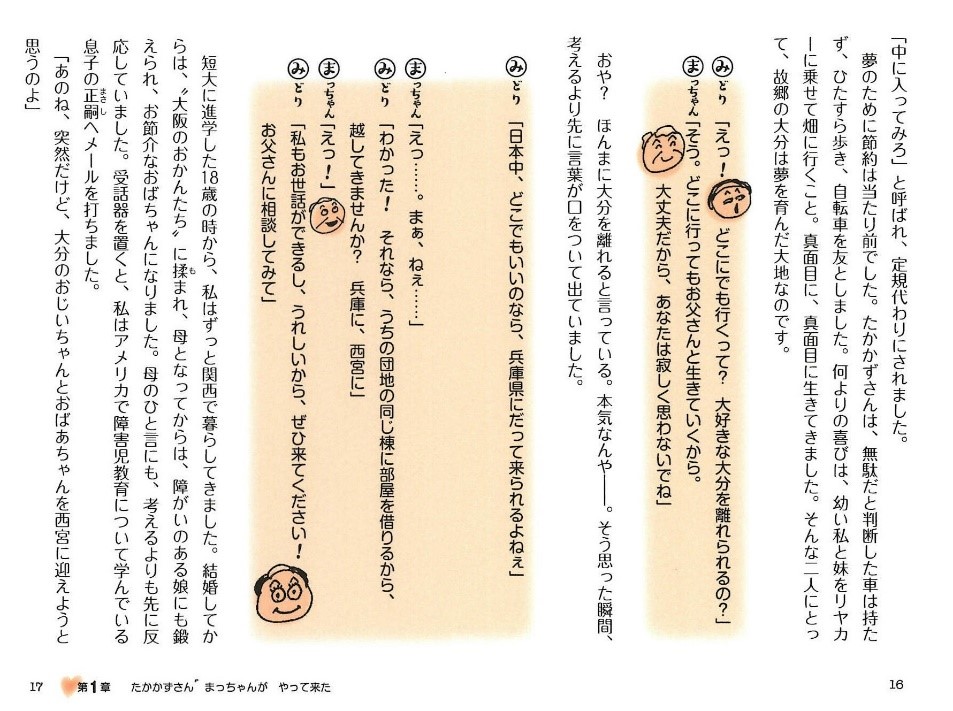 「中に入ってみろ」と呼ばれ、定規代わりにされました。
　夢のために節約は当たり前でした。たかかずさんは、無駄だと判断した車は持た
ず、ひたすら歩き、自転車を友としました。何よりの喜びは、幼い私と妹をリヤカ
ーに乗せて畑に行くこと。真面目に、真面目に生きてきました。そんな二人にとっ
て、故郷の大分は夢を育んだ大地なのです。
みどり「えっ！　どこにでも行くって？　大好きな大分を離れられるの？」
まっちゃん「そう。どこに行ってもお父さんと生きていくから。
大丈夫だから、あなたは寂しく思わないでね」
　おや？　ほんまに大分を離れると言っている。本気なんや――。そう思った瞬間、
考えるより先に言葉が口をついて出ていました。
みどり「日本中、どこでもいいのなら、兵庫県にだって来られるよねぇ」
まっちゃん「えっ……。まぁ、ねぇ……」
みどり「わかった！　それなら、うちの団地の同じ棟に部屋を借りるから、
越してきませんか？　兵庫に、西宮に」
まっちゃん「えっ！」
みどり「私もお世話ができるし、うれしいから、ぜひ来てください！
お父さんに相談してみて」
　短大に進学した18歳の時から、私はずっと関西で暮らしてきました。結婚してか
らは、〝大阪のおかんたち〟に揉まれ、母となってからは、障がいのある娘にも鍛
えられ、お節介なおばちゃんになりました。母のひと言にも、考えるよりも先に反
応していました。受話器を置くと、私はアメリカで障害児教育について学んでいる
息子の正嗣へメールを打ちました。
「あのね、突然だけど、大分のおじいちゃんとおばあちゃんを西宮に迎えようと
思うのよ」
16
17 第1章 たかかずさん〃まっちゃんが やって来た